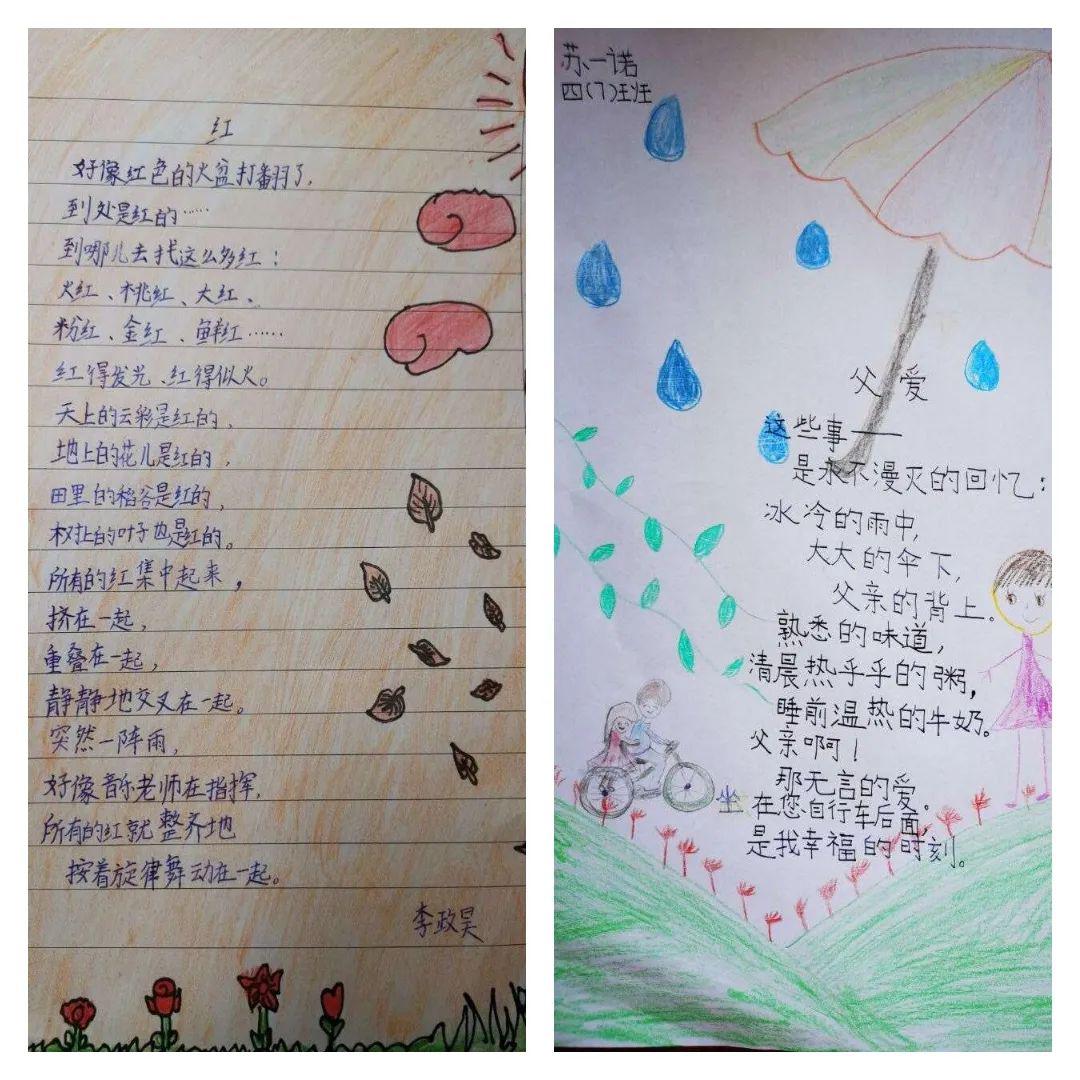 红
好像红色的火盆打翻了，
到处是红的……
到哪儿去找这么多红：
火红、桃红、大红、
粉红、金红、鲜红……
红得发光、红得似火。
天上的云彩是红的，
地上的花儿是红的，
田里的稻谷是红的，
树上的叶子也是红的。
所有的红集中起来，
挤在一起，
重叠在一起，
静静地交叉在一起。
突然一阵雨，
好像音乐老师在指挥，
所有的红就整齐地
按着旋律舞动在一起。
李政昊
苏一诺
四(7)班
父爱
这些事——
是永不漫灭的回忆：
冰冷的雨中，
大大的伞下，
父亲的背上。
熟悉的味道，
清晨热乎乎的粥，
睡前温热的牛奶。
父亲啊！
那无言的爱。
坐在您自行车后面，
是我幸福的时刻。